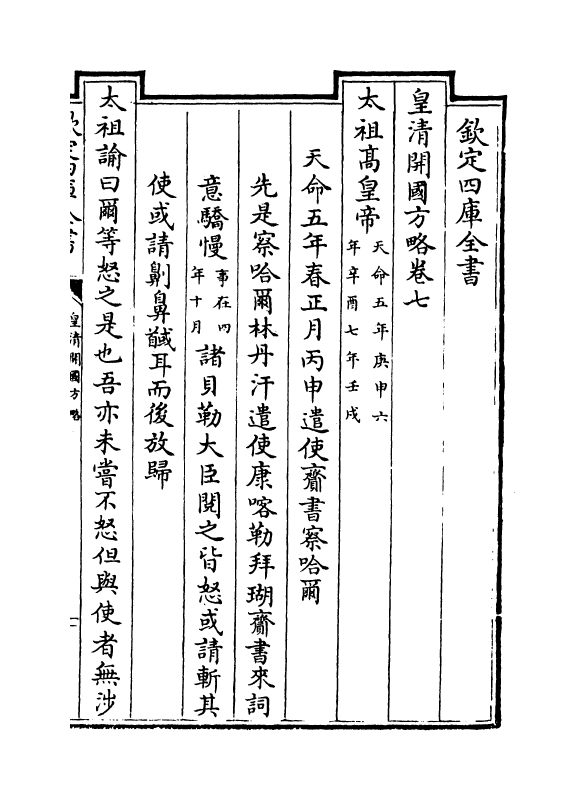 欽定四庫全書
皇清開國方略卷七
太祖高皇帝天命五年庚申六年辛酉七年壬戌
天命五年春正月丙申遣使齎書察哈爾
先是察哈爾林丹汗遣使康喀勒拜瑚齎書來詞
意驕慢事在四年十月諸貝勒大臣閱之皆怒或請斬其
使或請劓鼻馘耳而後放歸
太祖諭曰爾等怒之是也吾亦未嘗不怒但與使者無涉
欽定四庫全書
皇清開國方略
一